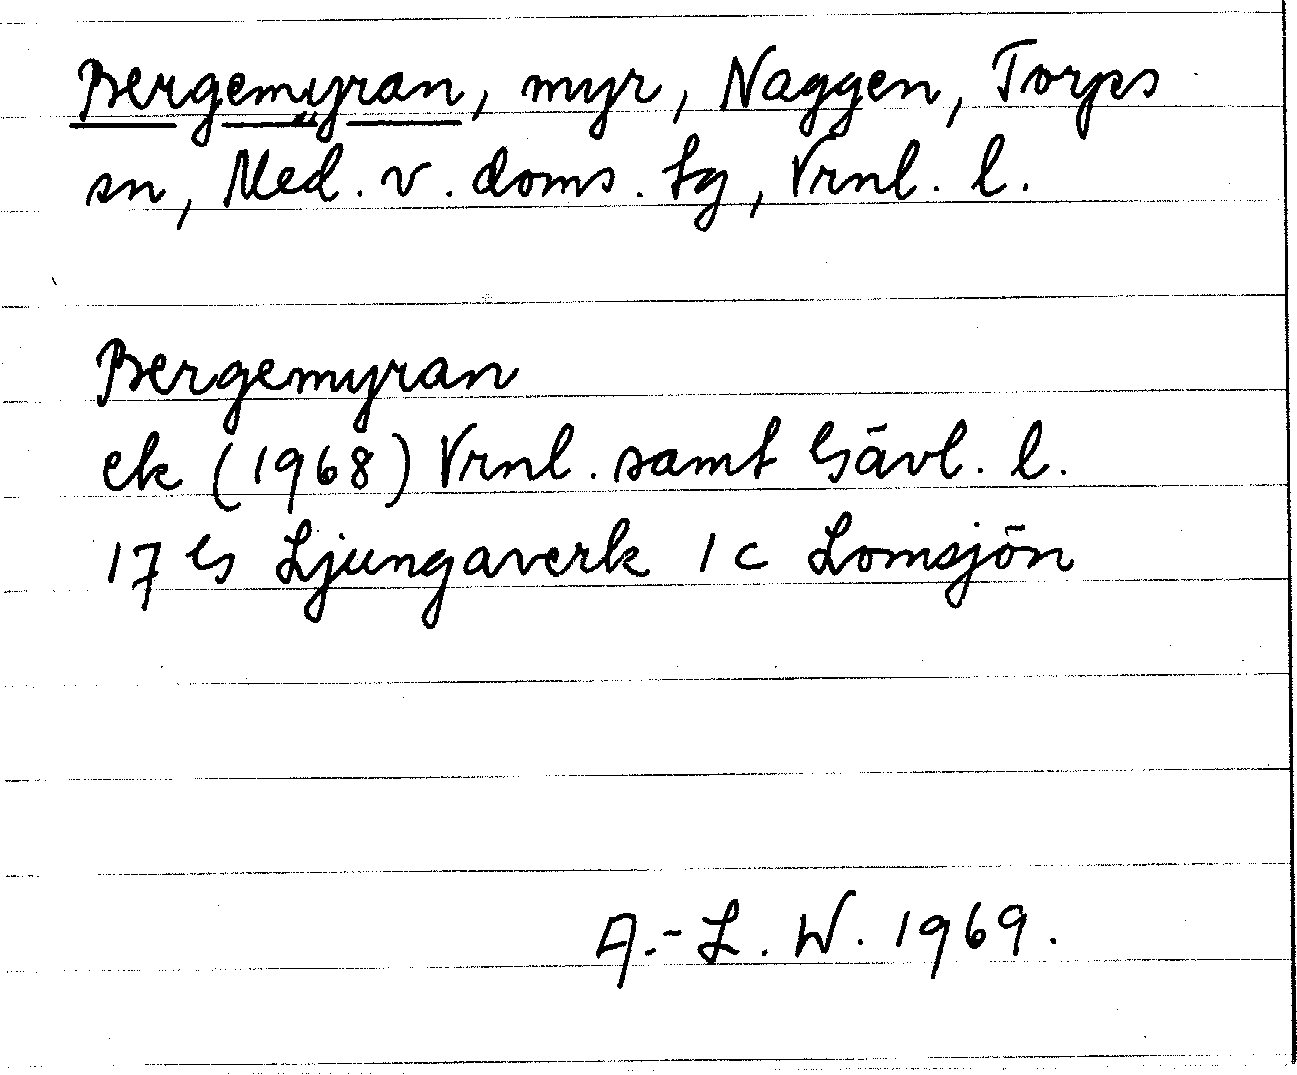 Bergemyran, myr, Naggen, Torps
sn, Med. v. doms. tg, Vrnl. l.
Bergemyran
ek (1968) Vrnl. samt Gävl. l.
17 G Ljungaverk 1 c Lomsjön
A.-L. W. 1969.